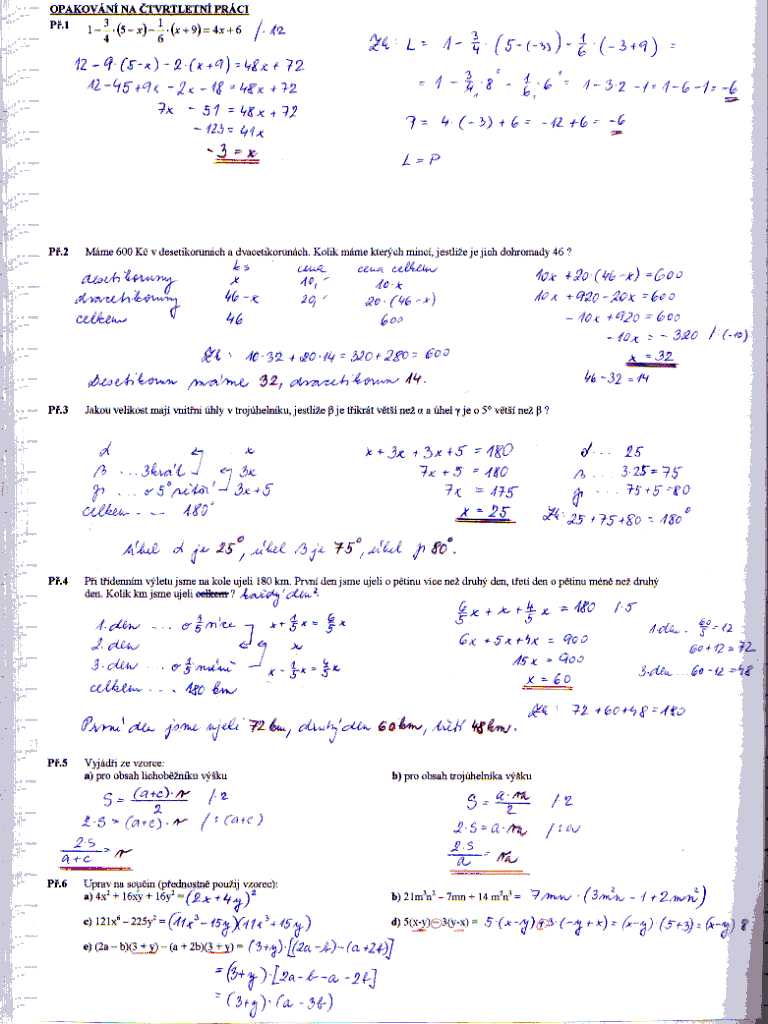 OPAKOVÁNÍ NA ČTVRTLETNÍ PRÁCI
Př.1 1 − 3/4 · (5 − x) − 1/6 · (x + 9) = 4x + 6 /·12
12 − 9·(5−x) − 2·(x+9) = 48x + 72
12 − 45 + 9x − 2x − 18 = 48x + 72
7x − 51 = 48x + 72
− 123 = 41x
− 3 = x
Zk: L = 1 − 3/4 · (5 − (−3)) − 1/6 · (−3+9) =
= 1 − 3/4 · 8 − 1/6 · 6 = 1 − 3·2 − 1 = 1 − 6 − 1 = −6
P = 4·(−3) + 6 = −12 + 6 = −6
L = P
Př.2 Máme 600 Kč v desetikorunách a dvacetikorunách. Kolik máme kterých mincí, jestliže je jich dohromady 46 ?
ks cena cena celkem
desetikoruny x 10,- 10·x
dvacetikoruny 46−x 20,- 20·(46−x)
celkem 46 600
10x + 20·(46−x) = 600
10x + 920 − 20x = 600
− 10x + 920 = 600
− 10x = − 320 /:(-10)
x = 32
46 − 32 = 14
Zk: 10·32 + 20·14 = 320 + 280 = 600
Desetikorun máme 32, dvacetikorun 14.
Př.3 Jakou velikost mají vnitřní úhly v trojúhelníku, jestliže β je třikrát větší než α a úhel γ je o 5° větší než β ?
α x
β ... 3krát 3x
γ ... o 5° větší 3x+5
celkem ... 180°
x + 3x + 3x + 5 = 180
7x + 5 = 180
7x = 175
x = 25
α ... 25
β ... 3·25 = 75
γ ... 75+5 = 80
Zk: 25 + 75 + 80 = 180°
Úhel α je 25°, úhel β je 75°, úhel γ 80°.
Př.4 Při třídenním výletu jsme na kole ujeli 180 km. První den jsme ujeli o pětinu více než druhý den, třetí den o pětinu méně než druhý
den. Kolik km jsme ujeli celkem ? každý den?
1. den ... o 1/5 více x + 1/5 x = 6/5 x
2. den x
3. den ... o 1/5 méně x − 1/5 x = 4/5 x
celkem ... 180 km
6/5 x + x + 4/5 x = 180 /·5
6x + 5x + 4x = 900
15x = 900
x = 60
1.den . 60/5 = 12
60+12 = 72
3.den ... 60−12 = 48
Zk: 72 + 60 + 48 = 180
První den jsme ujeli 72 km, druhý den 60 km, třetí 48 km.
Př.5 Vyjádři ze vzorce:
a) pro obsah lichoběžníku výšku
S = (a+c)·v / 2 /·2
2·S = (a+c)·v /:(a+c)
2·S / a+c = v
b) pro obsah trojúhelníka výšku
S = a·va / 2 /·2
2·S = a·va /:a
2·S / a = va
Př.6 Uprav na součin (přednostně použij vzorec):
a) 4x² + 16xy + 16y² = (2x + 4y)²
b) 21m³n² – 7mn + 14 m²n³ = 7mn · (3m²n − 1 + 2mn²)
c) 121x⁶ – 225y² = (11x³ − 15y)(11x³ + 15y)
d) 5(x-y) – 3(y-x) = 5·(x−y) + 3·(−y+x) = (x−y)(5+3) = (x−y) 8
e) (2a – b)(3 + y) – (a + 2b)(3 + y) = (3+y)·[(2a−b)−(a+2b)]
= (3+y)·[2a−b−a−2b]
= (3+y)·(a−3b)